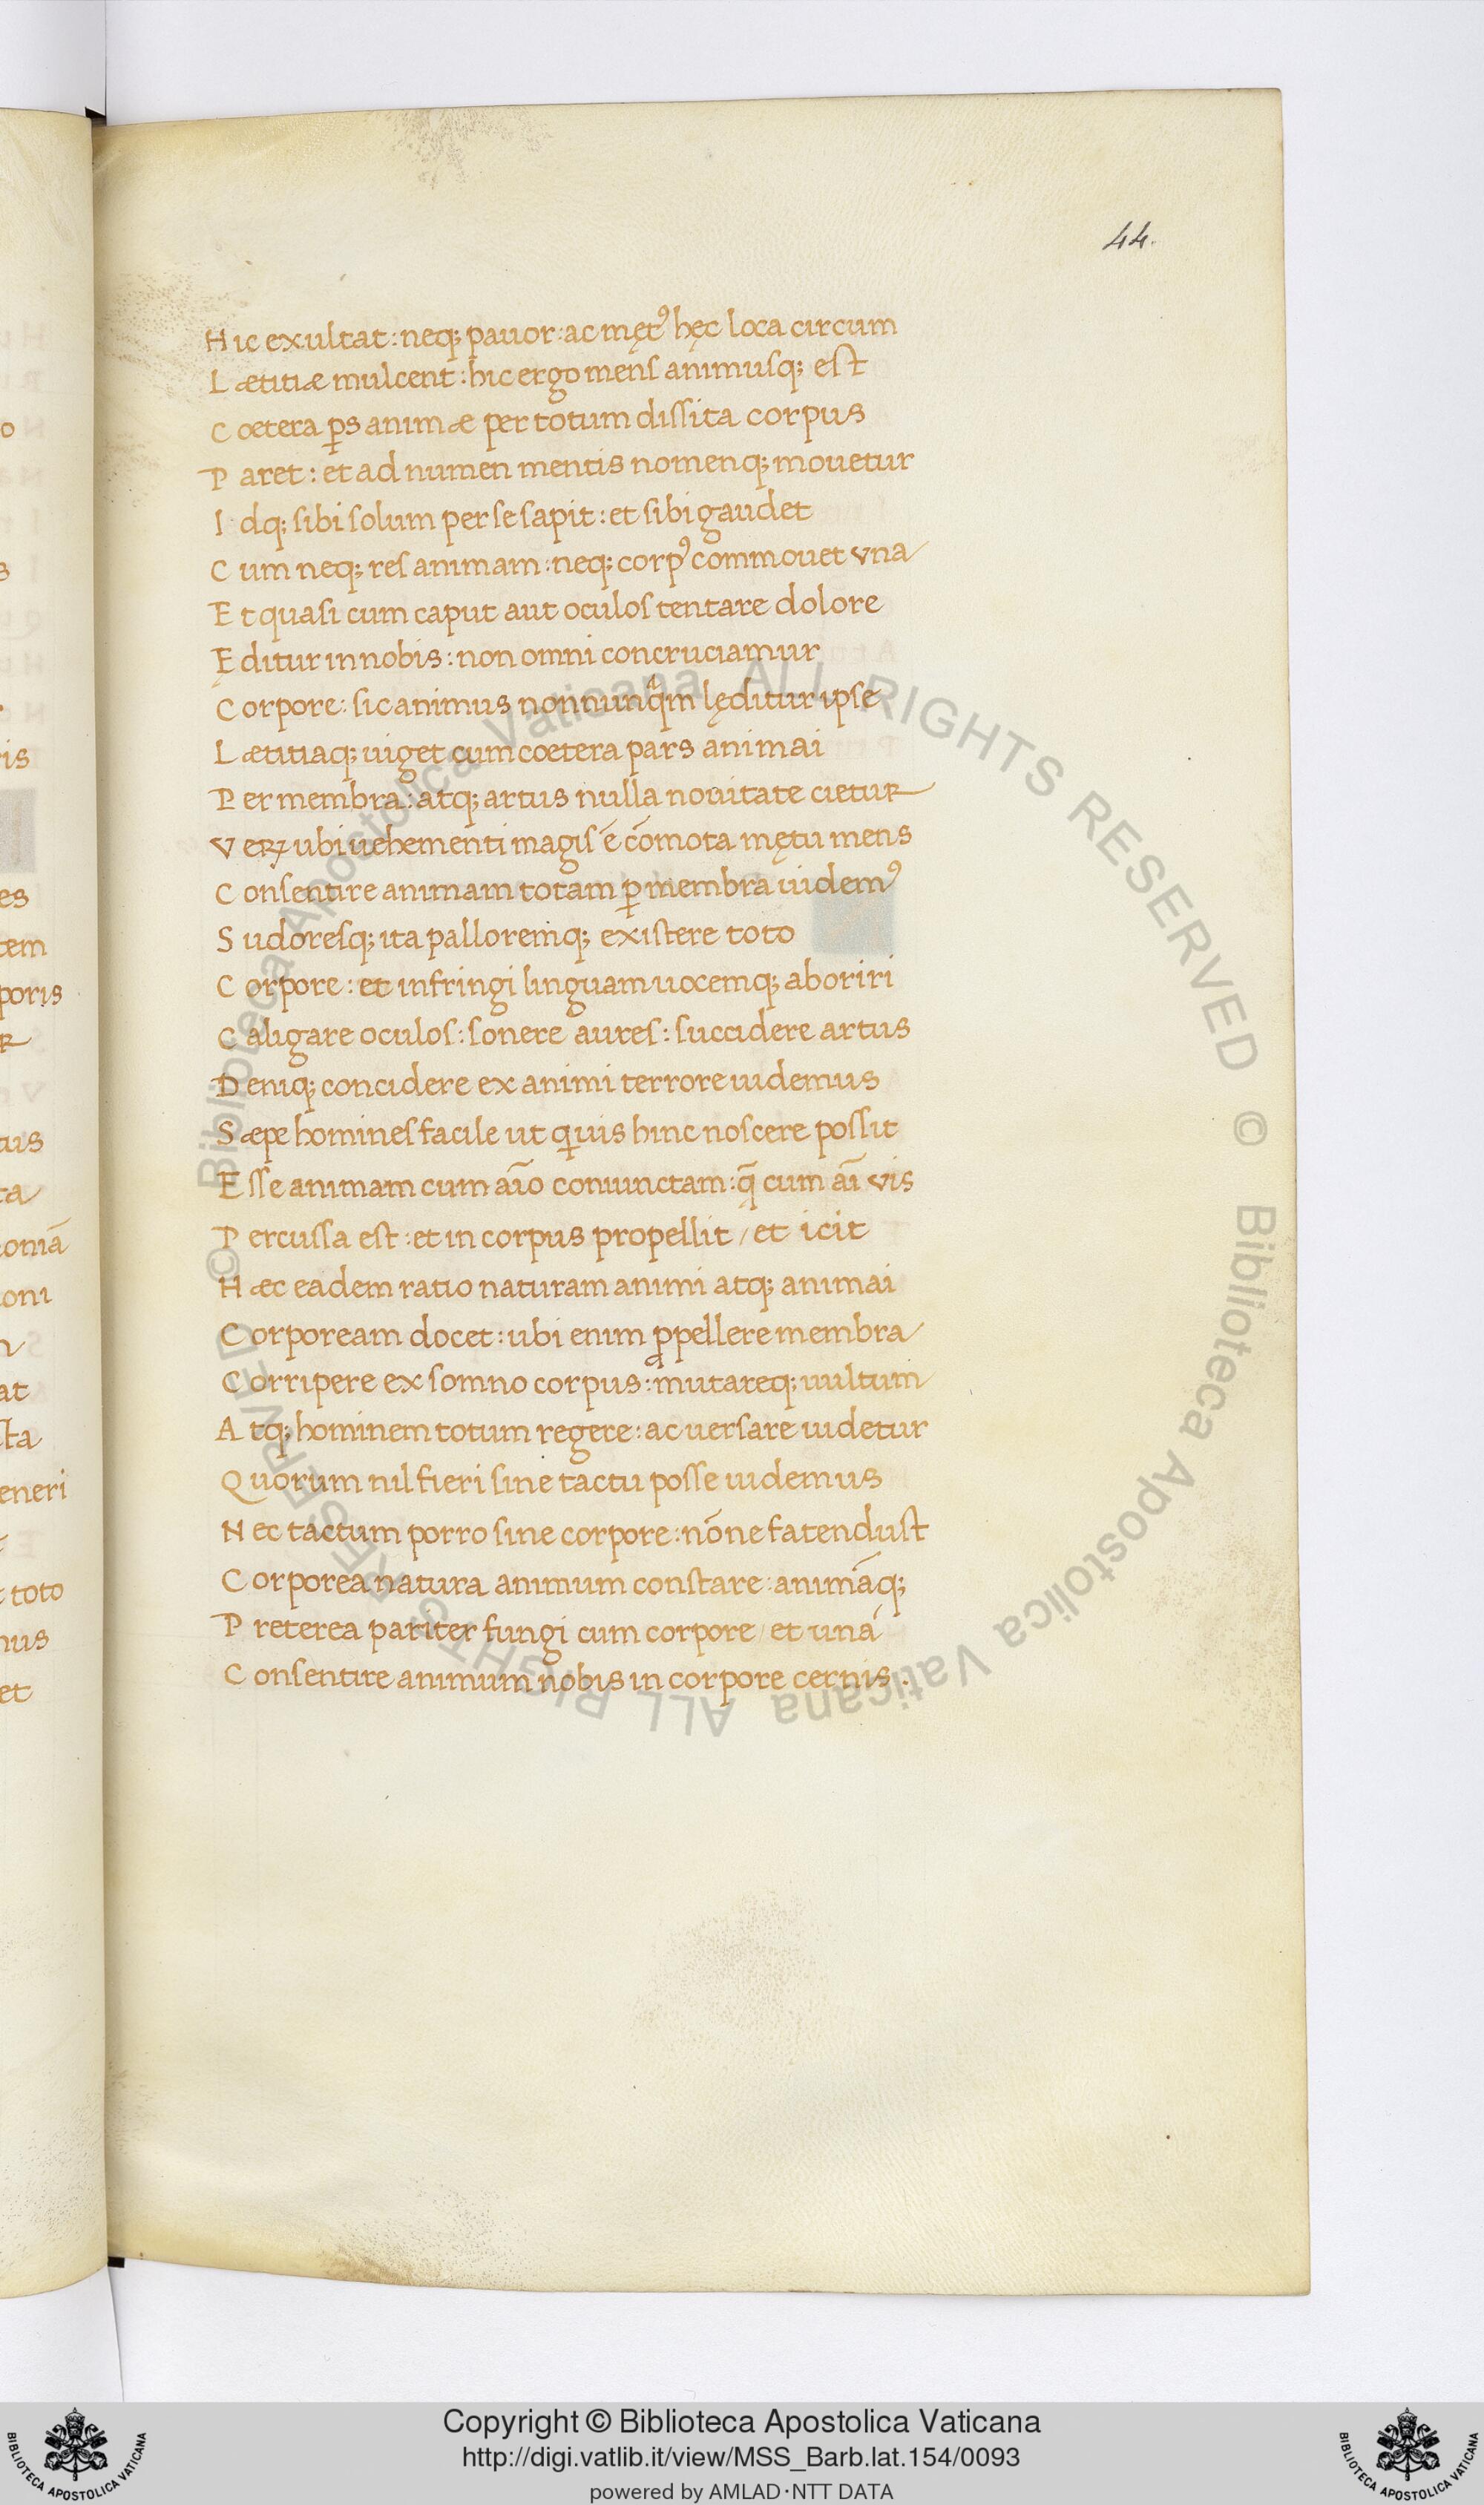 44.
Hic exultat: neq; pauor: ac mętꝰ hęc loca circum
Lætitiæ mulcent: hic ergo mens animusq; est
Coetera ꝑs animæ per totum dissita corpus
Paret: et ad numen mentis nomenq; mouetur
Idq; sibi solum per se sapit: et sibi gaudet
Cum neq; res animam: neq; corpꝰ commouet vna
Et quasi cum caput aut oculos tentare dolore
Ęditur in nobis: non omni concruciamur
Corpore: sic animus nonnunqᷓm lęditur ipse
Lætitiaq; uiget cum coetera pars animai
Per membra: atq; artus nulla nouitate cietur
Veꝝ ubi uehementi magis ē cōmota mętu mens
Consentire animam totam ꝑ membra uidemꝰ
Sudoresq; ita palloremq; existere toto
Corpore: et infringi linguam uocemq; aboriri
Caligare oculos: sonere aures: succidere artus
Deniq; concidere ex animi terrore uidemus
Sæpe homines facile ut quiuis hinc noscere possit
Esse animam cum aīo coniunctam: q̄ cum aī vis
Percussa est: et in corpus propellit / et icit
Hæc eadem ratio naturam animi atq; animai
Corpoream docet: ubi enim ꝓpellere membra
Corripere ex somno corpus: mutareq; uultum
Atq; hominem totum regere: ac uersare uidetur
Quorum nil fieri sine tactu posse uidemus
Nec tactum porro sine corpore: nōne fatendust
Corporea natura animum constare: animāq;
Preterea pariter fungi cum corpore / et una
Consentire animum nobis in corpore cernis.
o
s
ris
es
tem
poris
tus
ta
toniā
toni
at
ta
eneri
toto
mus
et
© Biblioteca Apostolica Vaticana ALL RIGHTS RESERVED © Biblioteca Apostolica Vaticana ALL RIGHTS RESERVED
Copyright © Biblioteca Apostolica Vaticana
http://digi.vatlib.it/view/MSS_Barb.lat.154/0093
powered by AMLAD·NTT DATA
BIBLIOTECA APOSTOLICA VATICANA
BIBLIOTECA APOSTOLICA VATICANA